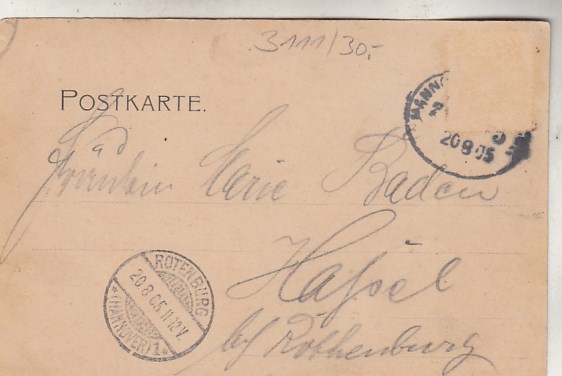 3111/30,-
POSTKARTE.
MANNO
20 8 05
Fräulein Marie Baden
ROTENBURG
20.8.05.11-12V.
*(HANNOVER)1*
Hassel
b/ Rothenburg